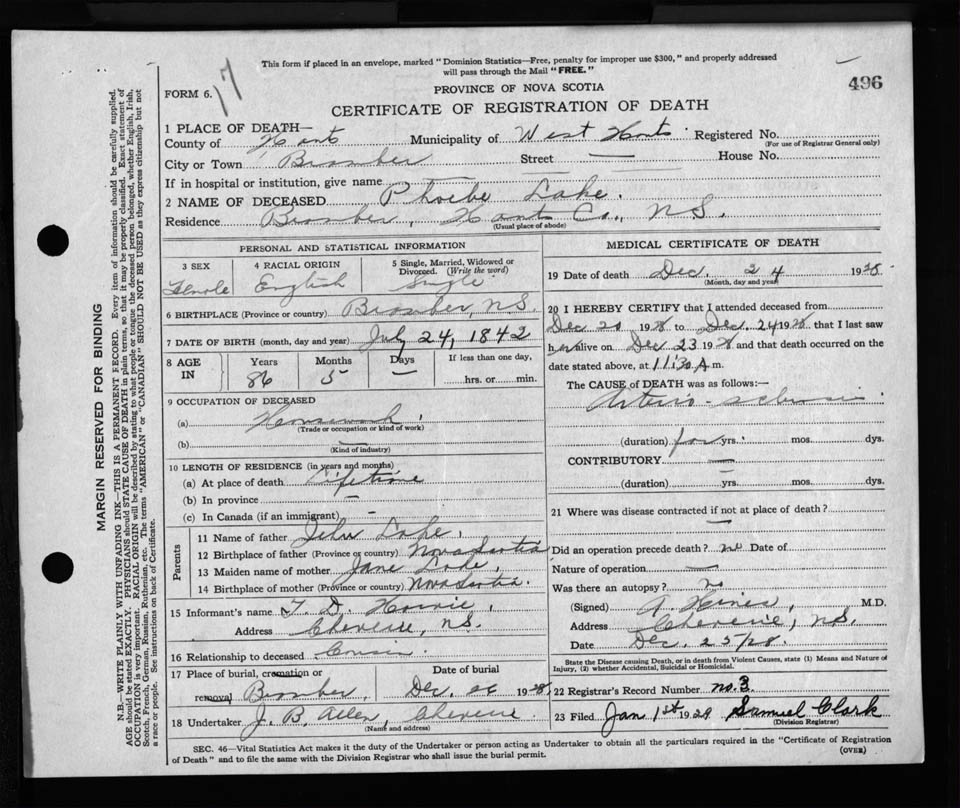 This form if placed in an envelope, marked "Dominion Statistics—Free, penalty for improper use $300," and properly addressed
will pass through the Mail "FREE."
496
FORM 6.
17
PROVINCE OF NOVA SCOTIA
CERTIFICATE OF REGISTRATION OF DEATH
1 PLACE OF DEATH—
County of Hants Municipality of West Hants Registered No.
(For use of Registrar General only)
City or Town Bramber Street — House No.
If in hospital or institution, give name —
2 NAME OF DECEASED Phoebe Lake.
Residence Bramber, Hants Co., N.S.
(Usual place of abode)
PERSONAL AND STATISTICAL INFORMATION
3 SEX 4 RACIAL ORIGIN 5 Single, Married, Widowed or
Divorced. (Write the word)
Female English Single
6 BIRTHPLACE (Province or country) Bramber, N.S.
7 DATE OF BIRTH (month, day and year) July 24, 1842
8 AGE IN Years Months Days If less than one day,
86 5 — hrs. or min.
9 OCCUPATION OF DECEASED
(a) Housework
(Trade or occupation or kind of work)
(b) —
(Kind of industry)
10 LENGTH OF RESIDENCE (in years and months)
(a) At place of death Lifetime
(b) In province —
(c) In Canada (if an immigrant) —
Parents
11 Name of father John Lake,
12 Birthplace of father (Province or country) Nova Scotia
13 Maiden name of mother Jane Lake,
14 Birthplace of mother (Province or country) Nova Scotia.
15 Informant's name T. D.
Address Cheverie, N.S.
16 Relationship to deceased Cousin
17 Place of burial, cremation or Date of burial
removal Bramber, Dec. 26 1928
18 Undertaker J. B. Allen, Cheverie
(Name and address)
MEDICAL CERTIFICATE OF DEATH
19 Date of death Dec. 24 1928
(Month, day and year)
20 I HEREBY CERTIFY that I attended deceased from
Dec 20 1928 to Dec. 24 1928 that I last saw
her alive on Dec 23 1928 and that death occurred on the
date stated above, at 11:30 A m.
The CAUSE OF DEATH was as follows:—
Arterio-sclerosis
(duration) for yrs. mos. dys.
CONTRIBUTORY —
(duration) yrs. mos. dys.
21 Where was disease contracted if not at place of death?
—
Did an operation precede death? no Date of
Nature of operation —
Was there an autopsy? no
(Signed) A. Hines, M.D.
Address Cheverie, N.S.
Date Dec. 25/28
State the Disease causing Death, or in death from Violent Causes, state (1) Means and Nature of
Injury, (2) whether Accidental, Suicidal or Homicidal.
22 Registrar's Record Number no. 3
23 Filed Jan 1st 1929 Samuel Clark
(Division Registrar)
SEC. 46—Vital Statistics Act makes it the duty of the Undertaker or person acting as Undertaker to obtain all the particulars required in the "Certificate of Registration
of Death" and to file the same with the Division Registrar who shall issue the burial permit.
(OVER)
MARGIN RESERVED FOR BINDING
N.B.—WRITE PLAINLY WITH UNFADING INK—THIS IS A PERMANENT RECORD. Every item of information should be carefully supplied.
AGE should be stated EXACTLY. PHYSICIANS should STATE CAUSE OF DEATH in plain terms, so that it may be properly classified. Exact statement of
OCCUPATION is very important. RACIAL ORIGIN will be described by stating to what people or tongue the deceased person belonged, whether English, Irish,
Scotch, French, German, Russian, Ruthenian, etc. The terms "AMERICAN" or "CANADIAN" SHOULD NOT BE USED as they express citizenship but not
a race or people. See instructions on back of Certificate.